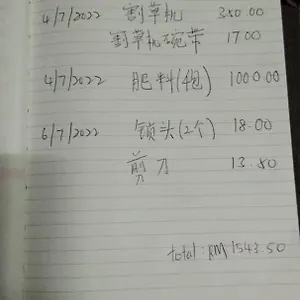 4/7/2022 割草机 350.00
割草机碗带 17.00
4/7/2022 肥料(4包) 1000.00
6/7/2022 锁头(2个) 18.00
剪刀 13.50
total: RM 1543.50